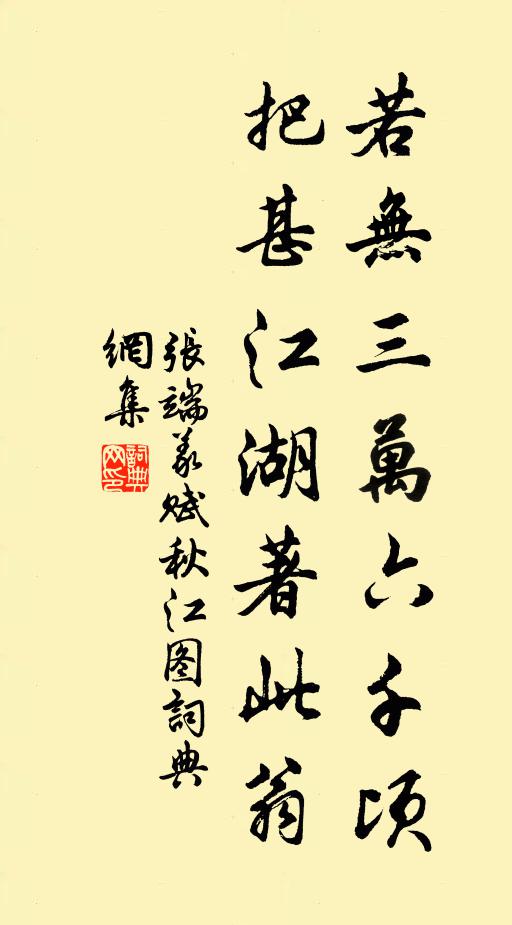 若無三萬六千頃
把甚江湖著此翁
張端義賦秋江图詞典
網集
詞典
网印